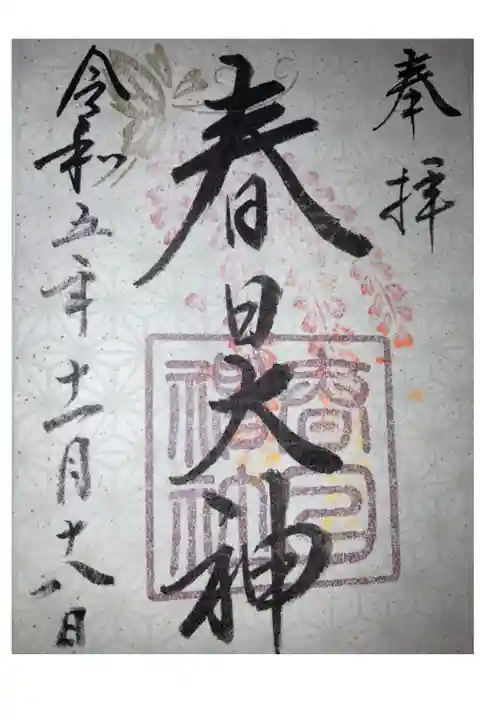 奉拝
春日大神
令和五年十一月十八日